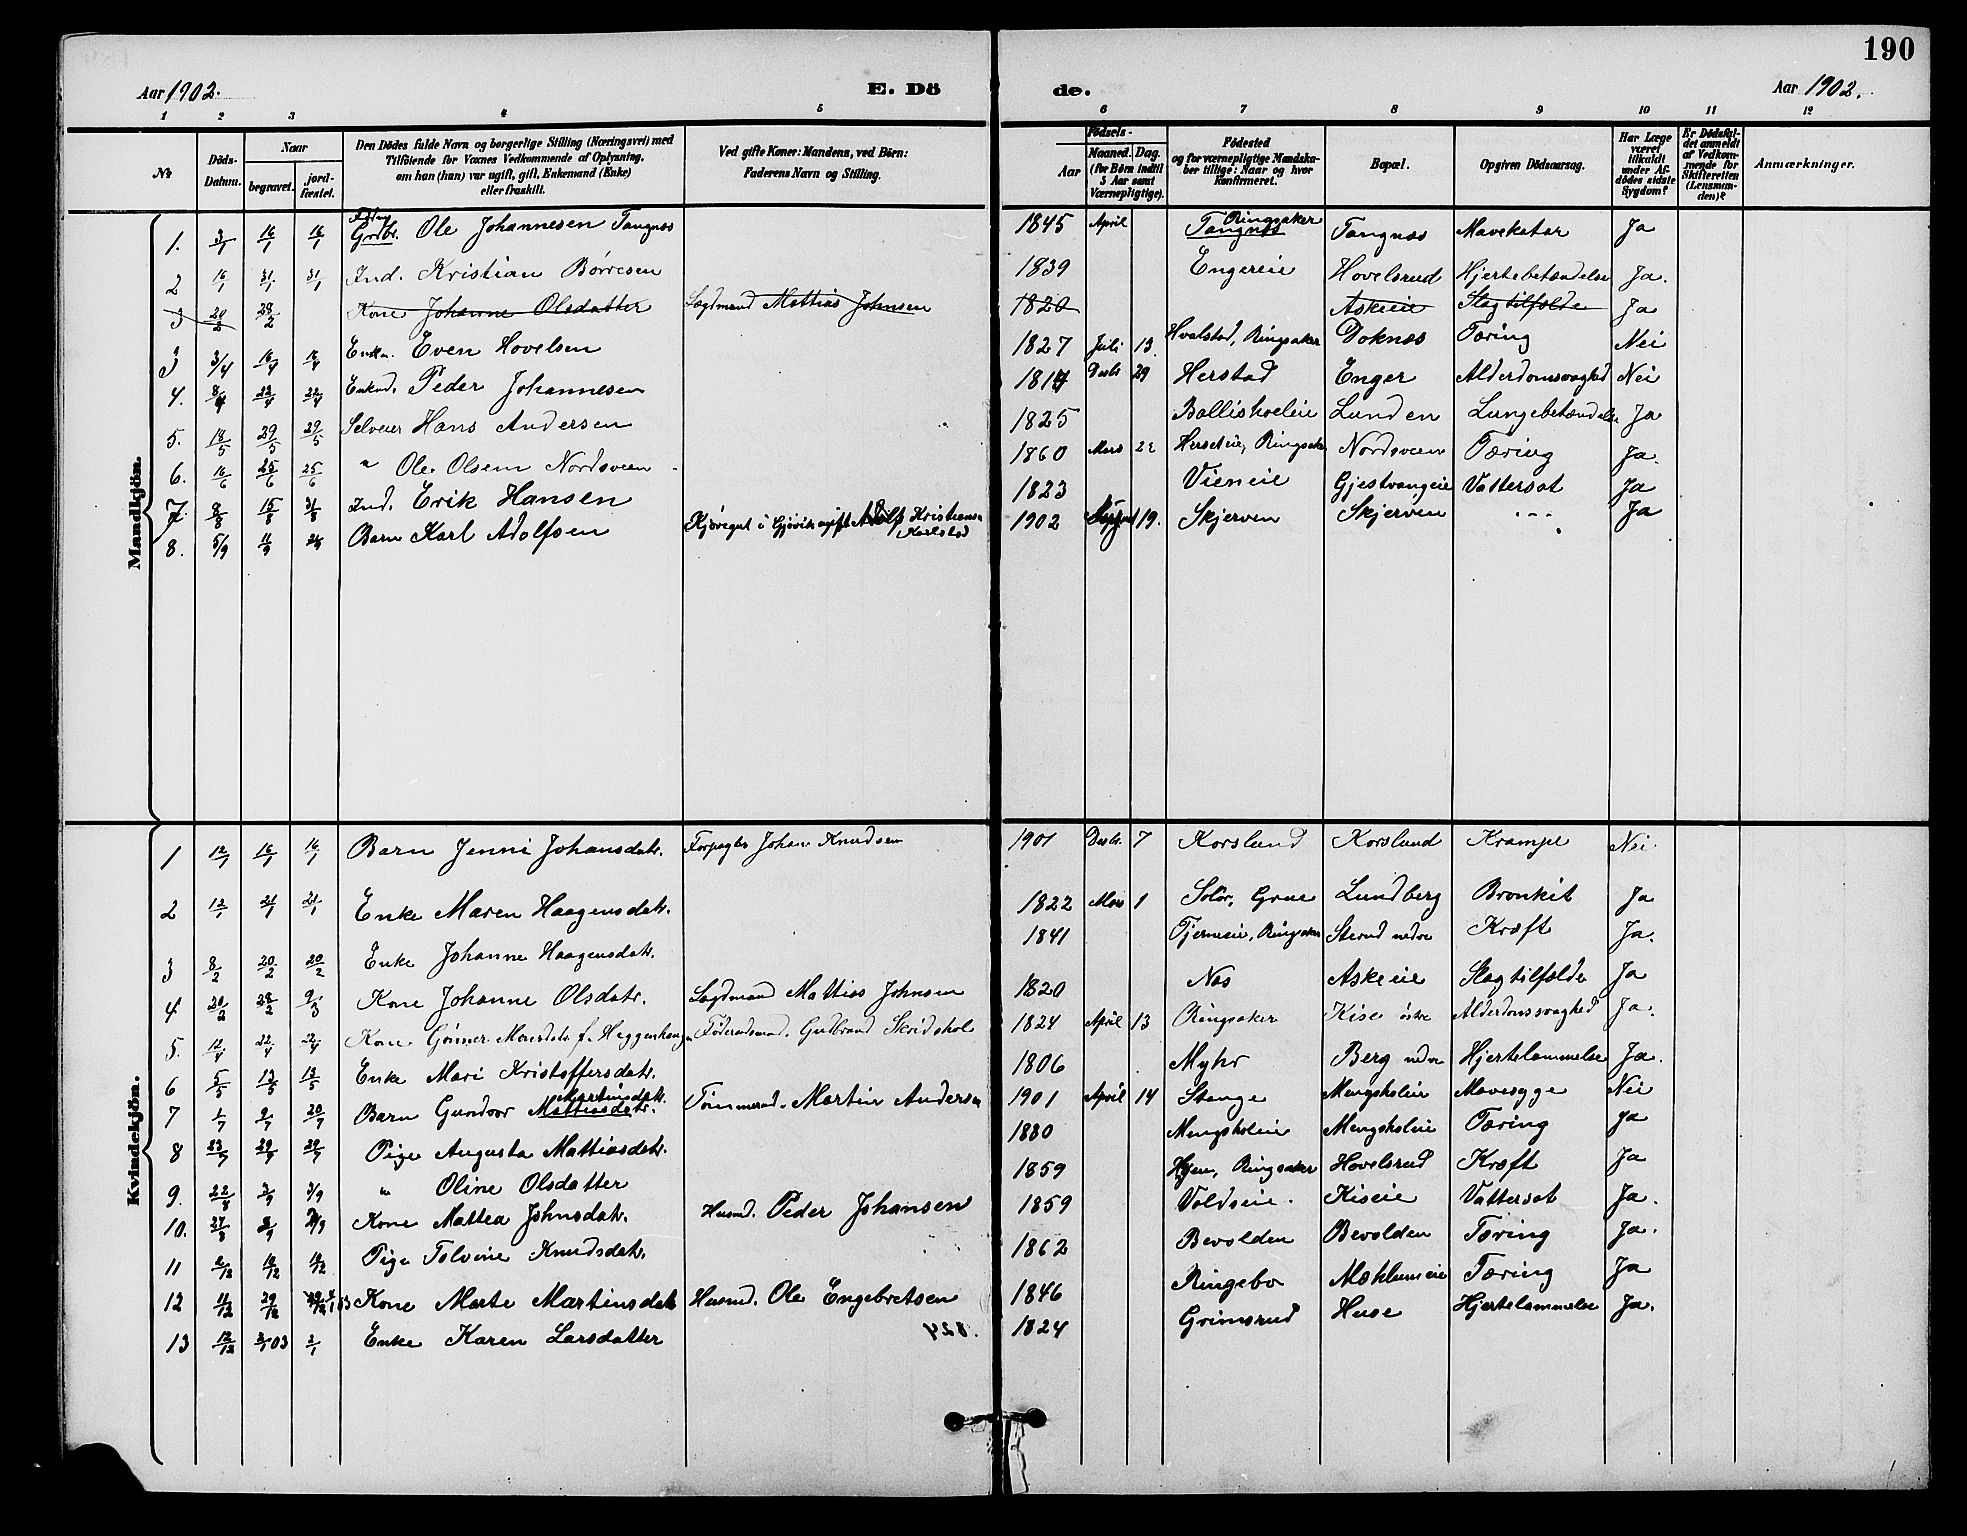 190
Aar 1902. E. Dö de. Aar 1902.
1 2 3 4 5 6 7 8 9 10 11 12
№ Döds-Datum. Naar begravet. jord-fæstet. Den Dödes fulde Navn og borgerlige Stilling (Næringsvei) med Tilföiende for Voxnes Vedkommende af Oplysning, om han (hun) var ugift, gift, Enkemand (Enke) eller fraskilt. Ved gifte Koner: Mandens, ved Börn: Faderens Navn og Stilling. Födsels- Aar Maaned. Dag. (for Börn indtil 5 Aar samt Værnepligtige). Födested og for værnepligtige Mandskaber tillige: Naar og hvor Konfirmeret. Bopæl. Opgiven Dödsaarsag. Har Læge været tilkaldt under Afdödes sidste Sygdom? Er Dödsfaldet anmeldt af Vedkommende for Skifteretten (Lensmanden)? Anmærkninger.
Mandkjön.
1. 3/1 16/1 16/1 Grdbr. Ole Johannesen Tangnæs 1845 April Ringsaker Tangnæs Tangnæs Mavekatar Ja
2 16/1 31/1 31/1 Ind. Kristian Börresen 1839 Engereie Hovelsrud Hjertebetændelse Ja.
3 20/2 28/2 Kone Johanne Olsdatter Sagdmand Mattias Johnsen 1820 Askeeie Slagtilfælde Ja
3 3/4 16/4 16/4 Enkm. Even Hovelsen 1827 Juli 13. Hvalstad, Ringsaker Doknæs Tæring Nei
4. 8/4 22/4 22/4 Enkmd. Peder Johannesen 1817 Decbr 29 Herstad Enger Alderdomssvaghed Nei
5. 18/5 29/5 29/5 Selveier Hans Andersen 1825 Ballisholeie Lunden Lungebetændelse Ja
6. 16/6 25/6 25/6 " Ole Olsen Nordsveen 1860 Mars 22 Herseteie, Ringsaker Nordsveen Tæring Ja.
7 8/8 15/8 31/8 Ind. Erik Hansen 1823 Vieneie Gjestvangeie Vattersot Ja
8. 5/9 11/9 Barn Karl Adolfsen Kjöregut i Gjövik ugift Adolf Kristiansen Karlstad 1902 19. Skjerven Skjerven " - - Ja
Kvindekjön.
1 12/1 16/1 16/1 Barn Jenni Johansdatr. Forpagter Johan Knudsen 1901 Decbr. 7 Korslund Korslund Krampe Nei
2 12/1 21/1 21/1 Enke Maren Haagensdatr. 1822 Mars 1 Solör, Grue Lundberg Bronkit Ja
3 8/2 20/2 20/2 Enke Johanne Haagensdatr. 1841 Tjerneeie, Ringsaker Sterud nedre Kræft Ja.
4 20/2 28/2 9/3 Kone Johanne Olsdatr. Sagdmand Mattias Johnsen 1820 Næs Askeeie Slagtilfælde Ja
5. 12/4 22/4 22/4 Kone Gönner Monsdatr. f. Heggenhaugen Föderaadsmand. Gudbrand Skridshol 1824 April 13 Ringsaker Kise östre Alderdomssvaghed Ja.
6 5/5 13/5 13/5 Enke Mari Kristoffersdatr. 1806 Myhr Berg nedre Hjertelammelse Ja.
7 1/7 9/7 20/7 Barn Gundvor Mattiasdatr. Martinsdatr. Tömmermd. Martin Andersen 1901 April 14 Stange Mengsholeie Mavesyge Nei
8 23/7 29/7 29/7 Pige Augusta Mattiasdatr. 1880 Mengsholeie Mengsholeie Tæring Ja
9. 22/8 3/9 3/9 " Oline Olsdatter 1859 Hjem, Ringsaker Hovelsrud Kræft Ja
10. 27/8 2/9 21/9 Kone Mattea Johnsdatr. Husmd. Peder Johansen 1859 Voldseie. Kiseie Vattersot Ja.
11 2/12 10/12 10/12 Pige Tolvine Knudsdatr. 1862 Bevolden Bevolden Tæring Ja.
12 11/12 29/12 Kone Marte Martinsdatr Husmd. Ole Engebretsen 1846 Ringebo Mæhlumeie Tæring Ja
13 18/12 2/1 03 2/1 Enke Karen Larsdatter 1824 Grimsrud Huse Hjertelammelse Ja.